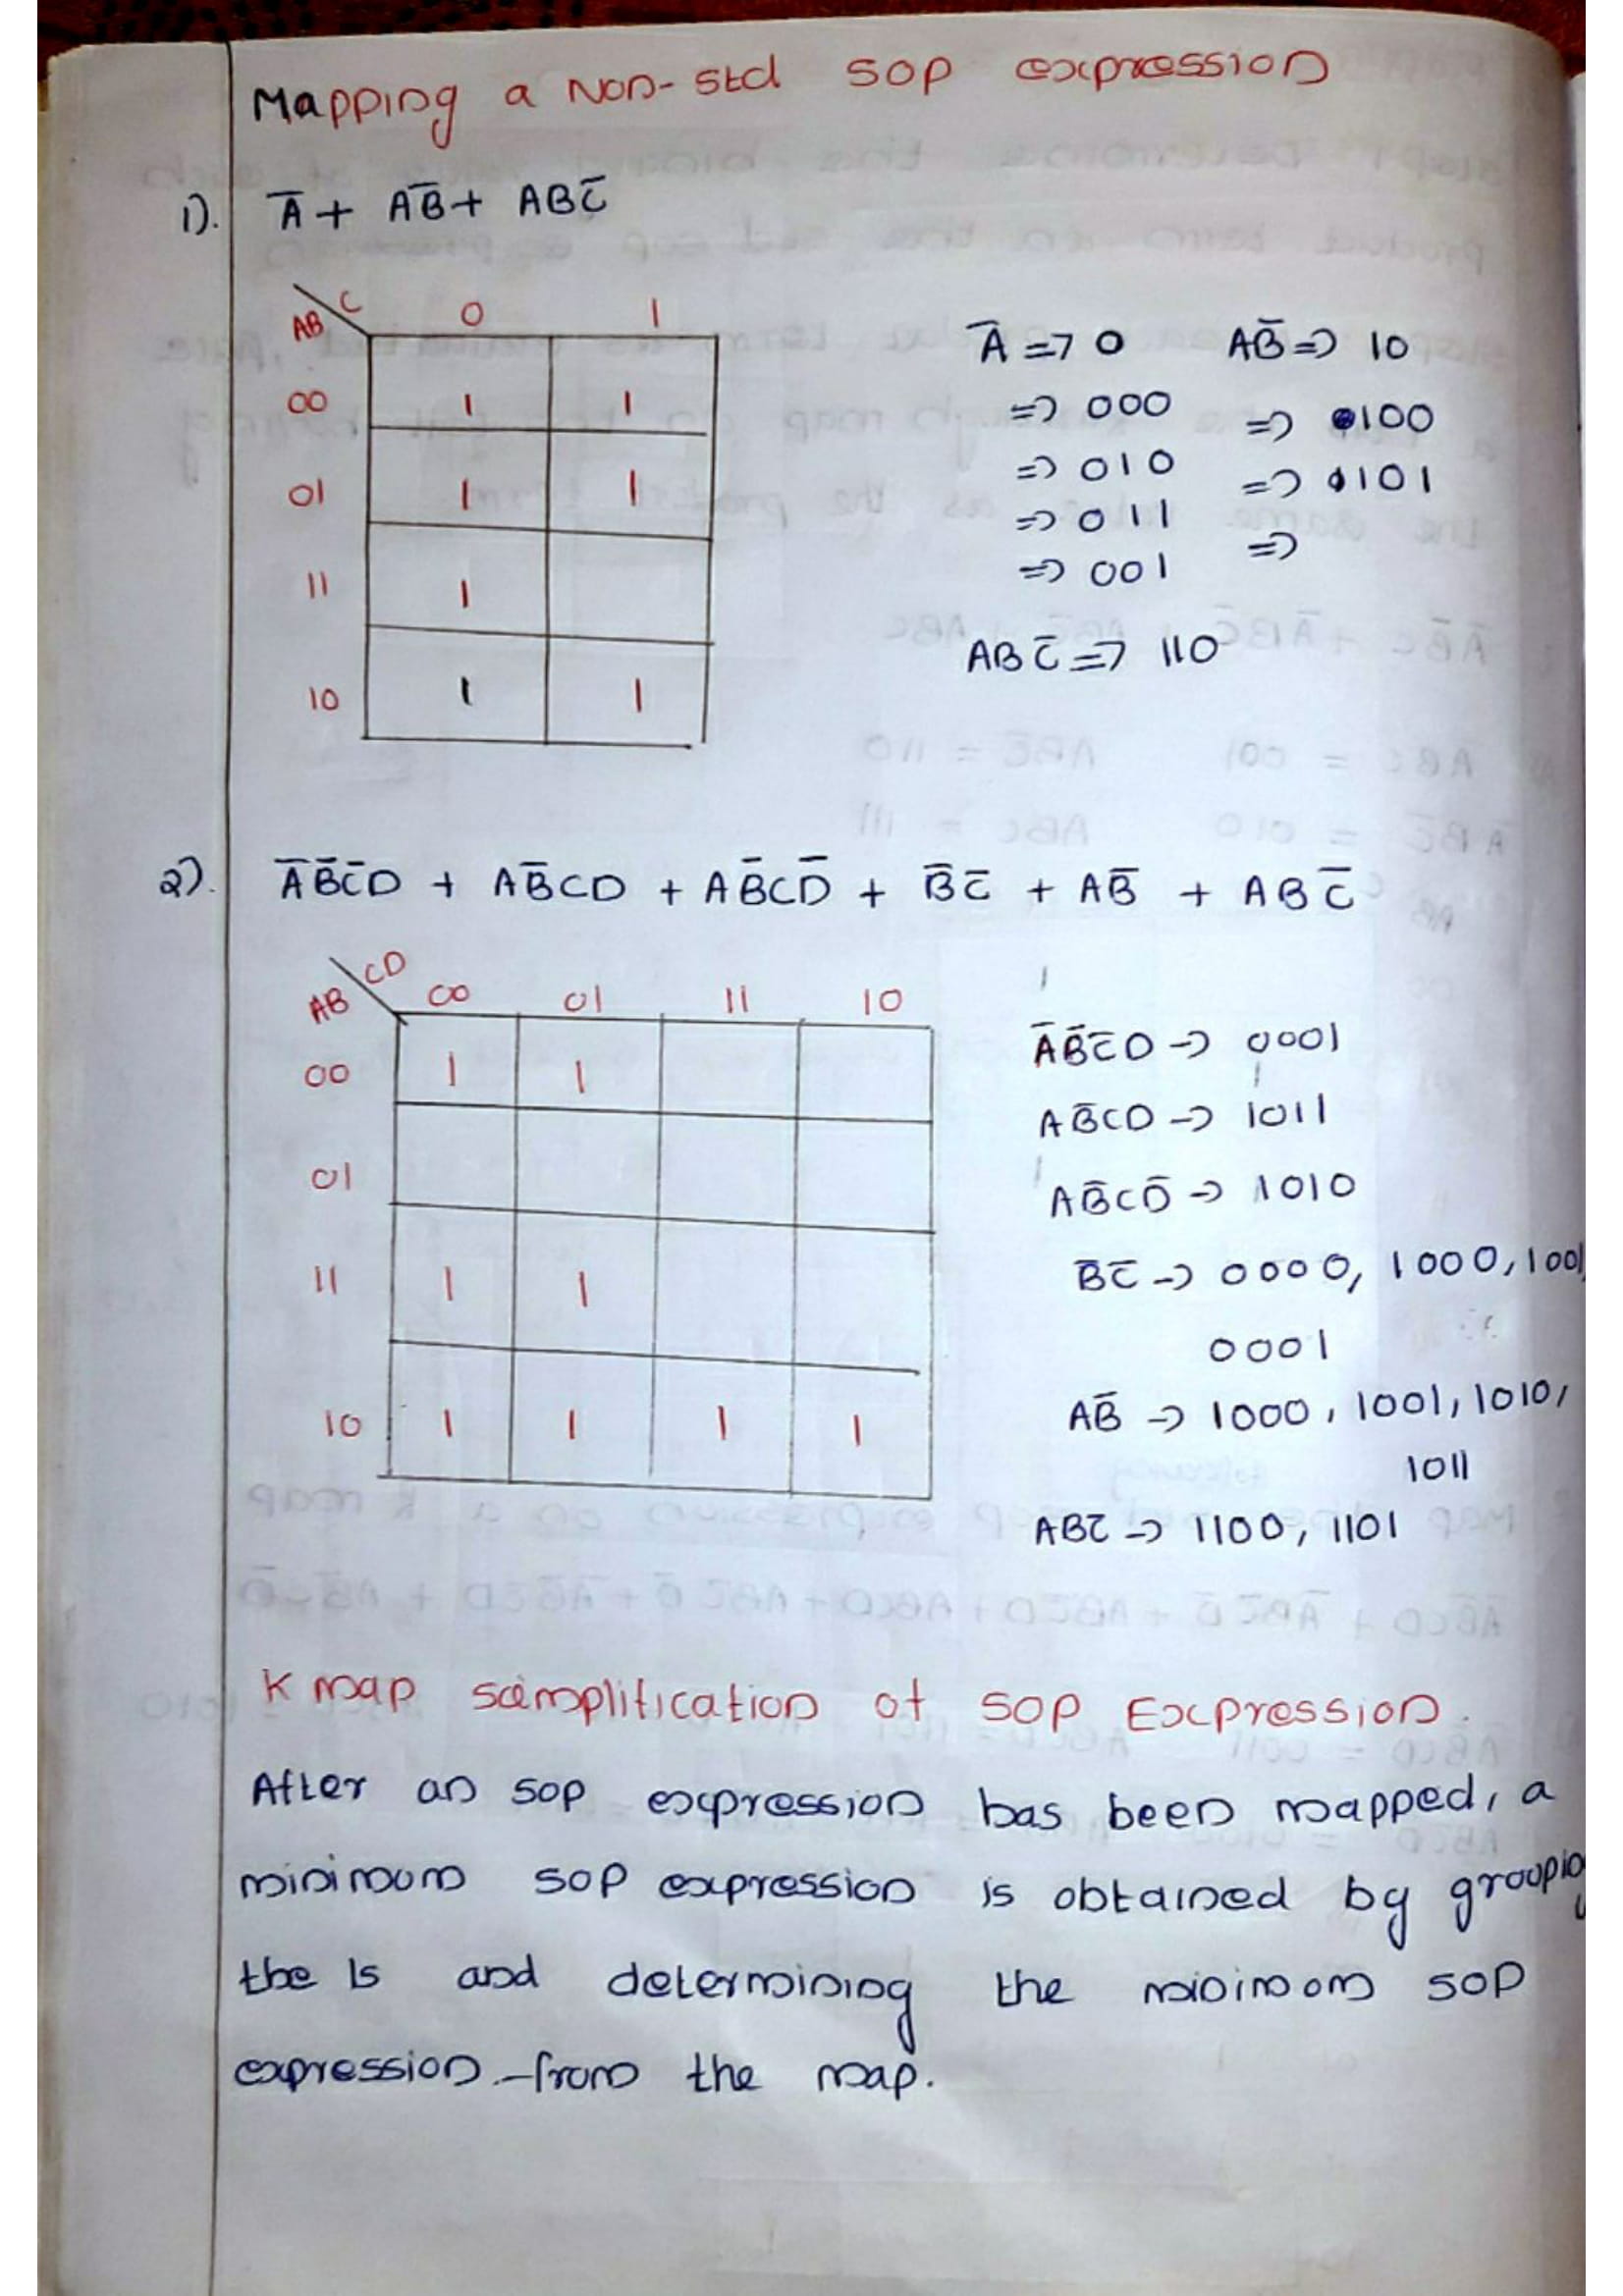 Mapping a Non-std SOP expression
1). A̅ + AB̅ + ABC̅
AB C 0 1
00 1 1
01 1 1
11 1
10 1 1
A̅ => 0 AB̅ => 10
=> 000 => 100
=> 010 => 101
=> 011 =>
=> 001
ABC̅ => 110
2). A̅B̅C̅D + AB̅CD + AB̅CD̅ + B̅C̅ + AB̅ + ABC̅
AB CD 00 01 11 10
00 1 1
01
11 1 1
10 1 1 1 1
A̅B̅C̅D -> 0001
AB̅CD -> 1011
AB̅CD̅ -> 1010
B̅C̅ -> 0000, 1000, 1001,
0001
AB̅ -> 1000, 1001, 1010,
1011
ABC̅ -> 1100, 1101
K map simplification of SOP Expression.
After an SOP expression has been mapped, a
minimum SOP expression is obtained by grouping
the 1s and determining the minimum SOP
expression from the map.